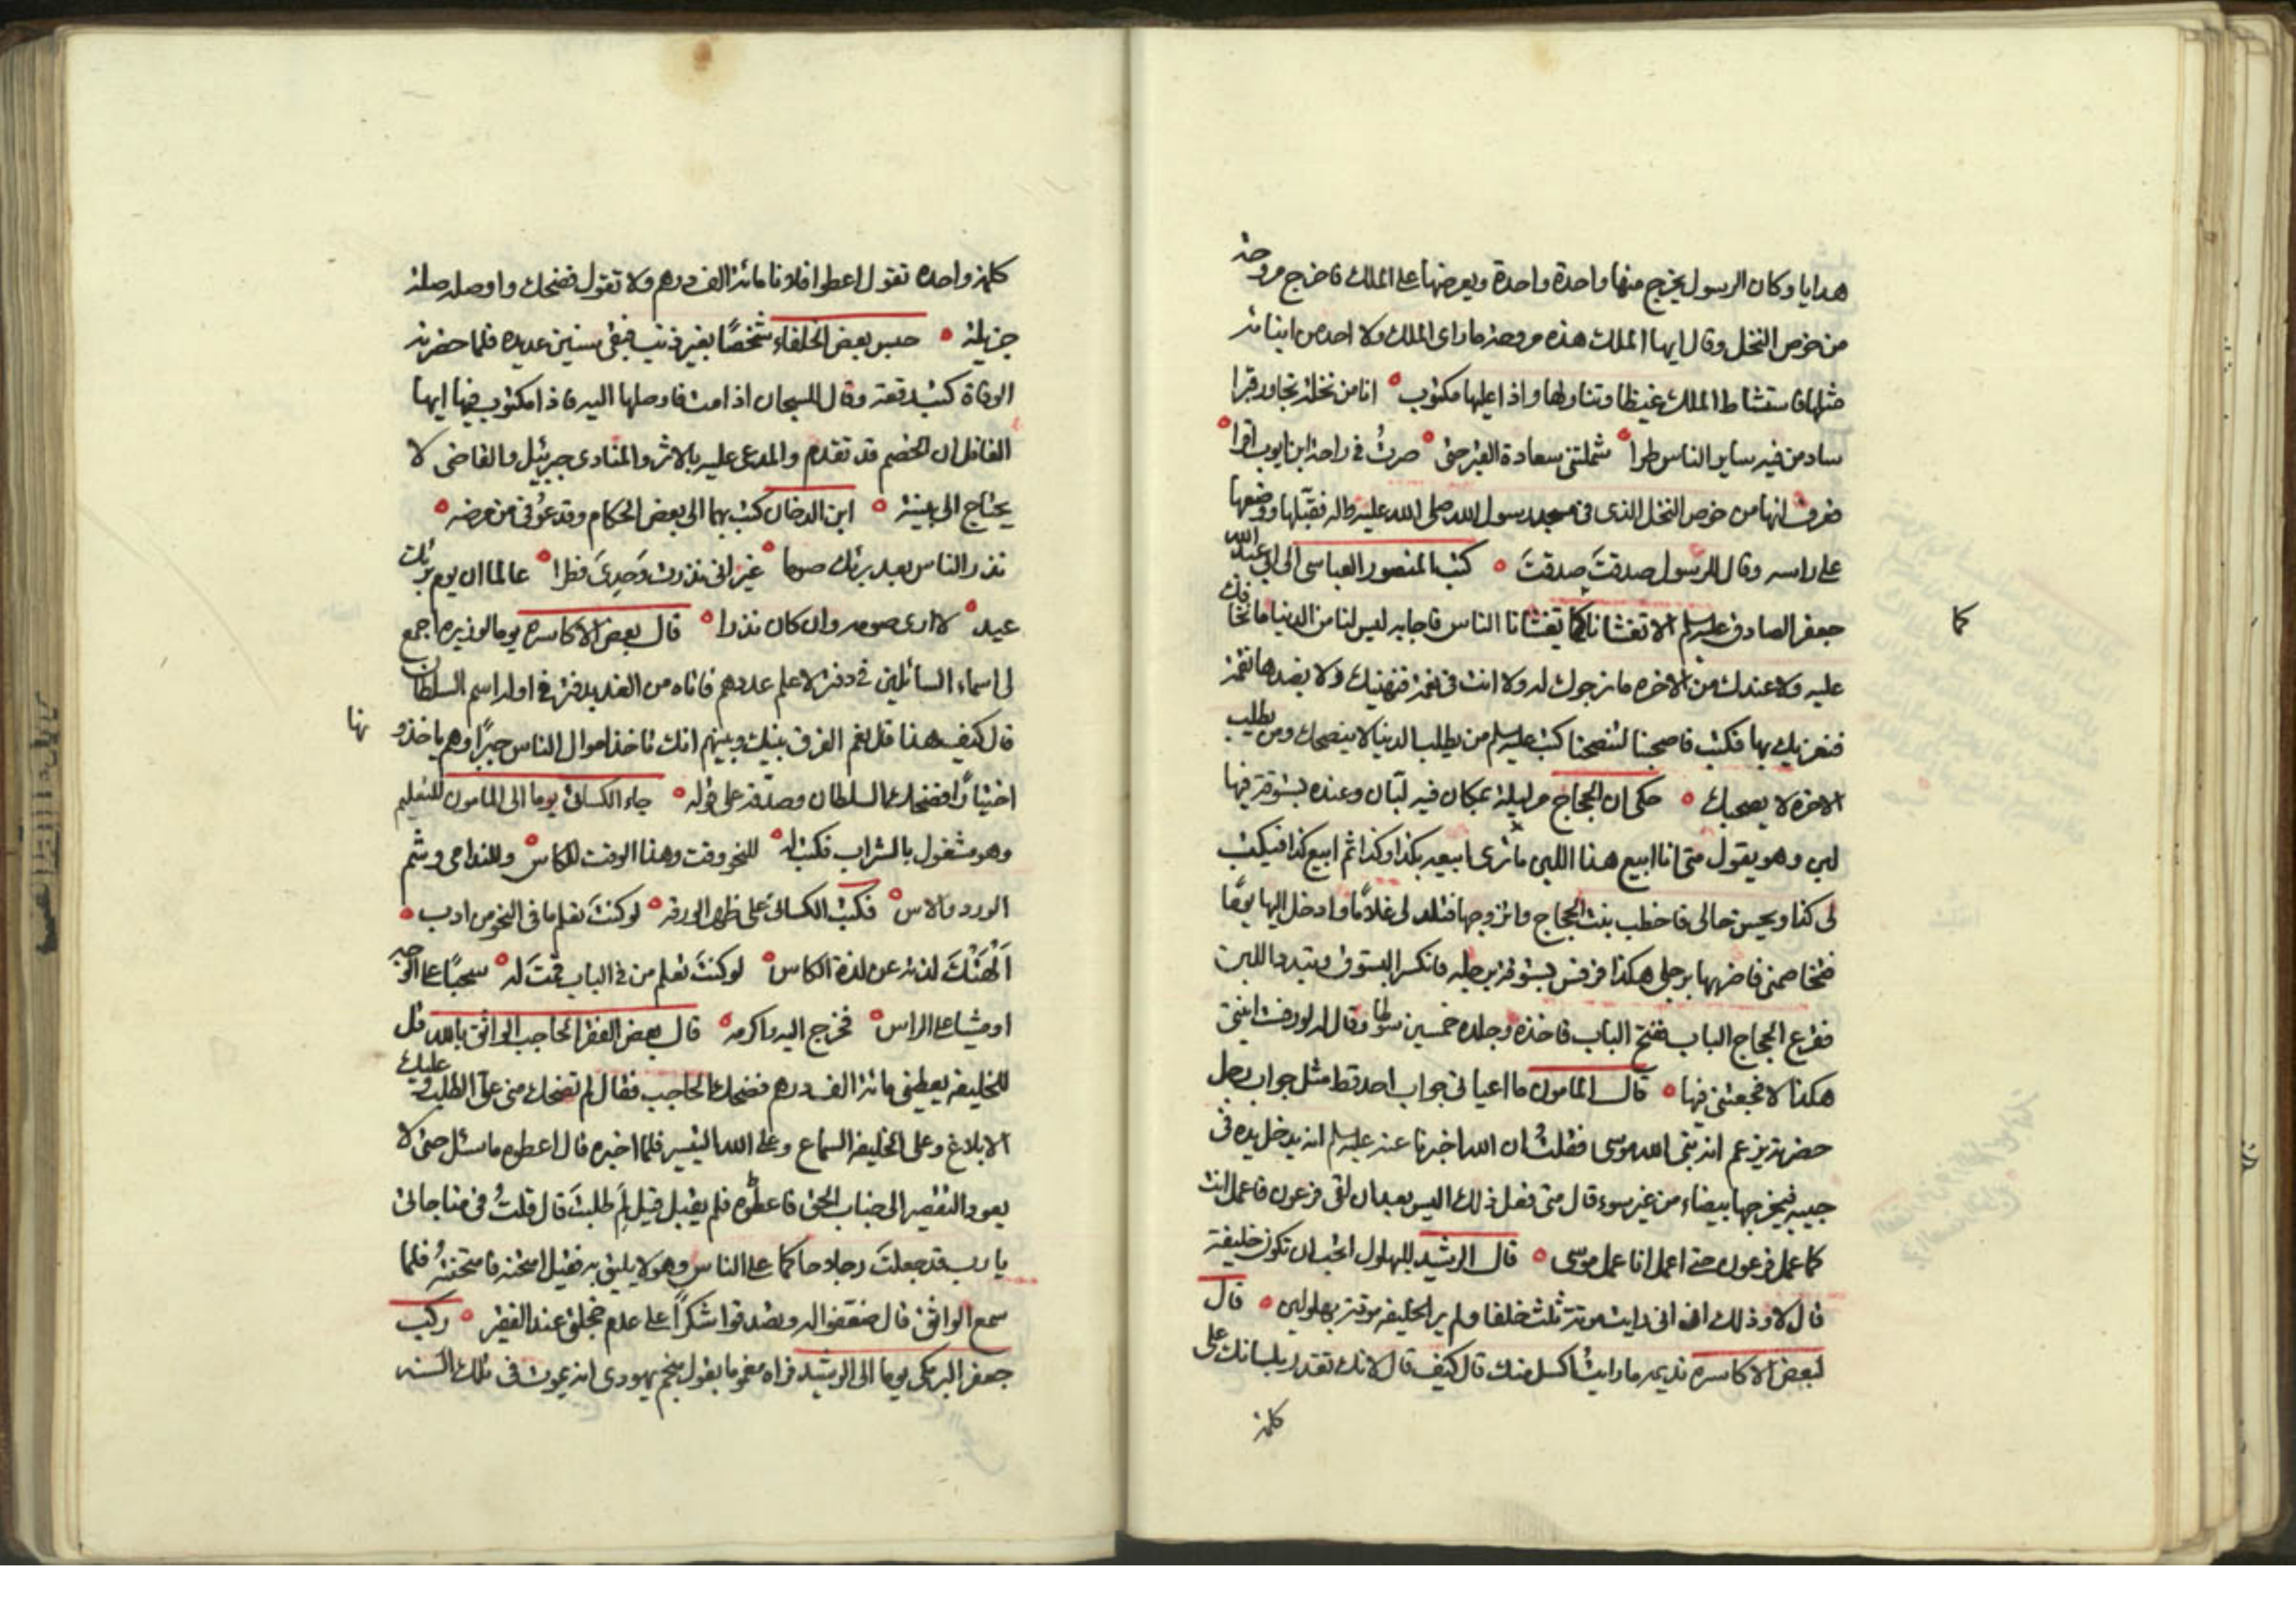 هدايا وكان الرسول يخرج منها واحدة واحدة ويعرضها على الملك فاخرج مروحة
من خوص النخل وقال ايها الملك هذه مروحة ما راى الملك ولا احد من ابنائه
مثلها فاستشاط الملك غيظا وتناولها واذا عليها مكتوب انا من نخلة تجاور قبرا
ساد من فيه ساير الناس طرا شملتني سعادة القبر حتى صرت في راحة ابن ايوب اقرا
فعرف انها من خوص النخل الذى فى مسجد رسول الله صلى الله عليه واله فقبلها ووضعها
على راسه وقال للرسول صدقتَ صدقتَ كتب المنصور العباسى الى ابى عبد الله
جعفر الصادق عليه السلم الا تغشانا كما تغشانا الناس فاجابه ليس لنا من الدنيا ما نخافك
كما
عليه ولا عندك من الاخره ما نرجوك له ولا انت فى نعمة فنهنيك ولا بعدها نقمة
فنعزيك بها فكتب فاصحبنا لتنصحنا كتب عليه السلم من يطلب الدنيا لا ينصحك ومن يطلب
الاخره لا يصحبك حكى ان الحجاج مر ليلة بمكان فيه لبّان وعنده بستوقة فيها
لبن وهو يقول متى انا ابيع هذا اللبن ماترى ابيعه بكذا وكذا ثم ابيع كذا فيكتب
لى كذا ويحسن حالى فاخطب بنت الحجاج واتزوجها فتلد لى غلامًا وادخل اليها يومًا
فتخاصمنى فاضربها برجلى هكذا فرفس بستوقة برجله فانكسر البستوق وتبدد اللبن
فقرع الحجاج الباب ففتح الباب فاخذه وجلده خمسين سوطا وقال له لو رفست ابنتى
هكذا لا فجعتنى فيها قال المامون ما اعيانى جواب احد قط مثل جواب رجل
حضرته يزعم انه نبى الله موسى فقلتُ ان الله اخبرنا عنه عليه السلم انه يدخل يده فى
جيبه فيخرجها بيضاء من غير سوء قال متى فعل ذلك اليس بعد ان لقى فرعون فاعمل انت
كما عمل فرعون حتى اعمل انا عمل موسى قال الرشيد للبهلول اتحب ان تكون خليفة
قال لا وذلك انى رايت موت ثلث خلفا ولم ير الخليفة موت بهلولين قال
لبعض الاكاسره نديمه ما رايتُ اكسل منك قال كيف قال لانك تقدر بلسانك على
كلمة
كلمة واحده تقول اعطوا فلانا مائة الف درهم ولا تقول فضحك واوصله صلة
جزيلة حبس بعض الخلفاء شخصًا بغير ذنب فبقى سنين عديده فلما حضرته
الوفاة كتب رقعة وقال للسجان اذا مت فاوصلها اليه فاذا مكتوب فيها ايها
الغافل ان الخصم قد تقدم والمدعى عليه بالاثر والمنادى جبرئيل والقاضى لا
يحتاج الى بينة ابن الدهان كتب بها الى بعض الحكام وقد عوفى من مرضه
نذر الناس بعد برئك صوما غير انى نذرت وَحدِىَ فطرا عالما ان يوم برئك
عيد لا ارى صومه وان كان نذرا قال بعض الاكاسره يوما لوزيره اجمع
لى اسماء السائلين فى دفتر لاعلم عددهم فاتاه من الغد بدفتر فى اوله اسم السلطان
قال كيف هذا قال نعم الفرق بينك وبينهم انك تاخذ اموال الناس جبرًا وهم ياخذو
نها
اختيارًا فضحك السلطان وصدّقه على قوله جاء الكسائى يوما الى المامون للتعليم
وهو مشغول بالشراب فكتب له للنحو وقت وهذا الوقت للكاس وللندامى وشم
الورد والاس فكتب الكسائى على ظهر الورقه لو كنتَ تعلم ما فى النحو من ادب
اَلْهَتْكَ لذته عن لذة الكاس لو كنتَ تعلم من فى الباب قمتَ له سحبًا على الوجه
او مشيا على الراس فخرج اليه واكرمه قال بعض الفقرا لحاجب الواثق بالله قل
للخليفة يعطينى مائة الف درهم فضحك الحاجب فقال لم تضحك منى علىّ الطلب وعليك
الابلاغ وعلى الخليفة السماع وعلى الله التيسير فلما اخبره قال اعطوه ما سئل حتى لا
يعود التقصير الى جناب الحق فاعطوه فلم يقبل قيل لِمَ طلبتَ قال قلتُ فى مناجاتى
يا رب قد جعلتَ رجلا حاكما على الناس وهو لا يليق به فقيل امتحنه فامتحنتُه فلما
سمع الواثق قال ضعّفوا له وتصدقوا شكرًا على عدم خجلتى عند الفقير ركب
جعفر البرمكى يوما الى الرشيد فراه مغموما بقول منجم يهودى انه يموت فى تلك السنه